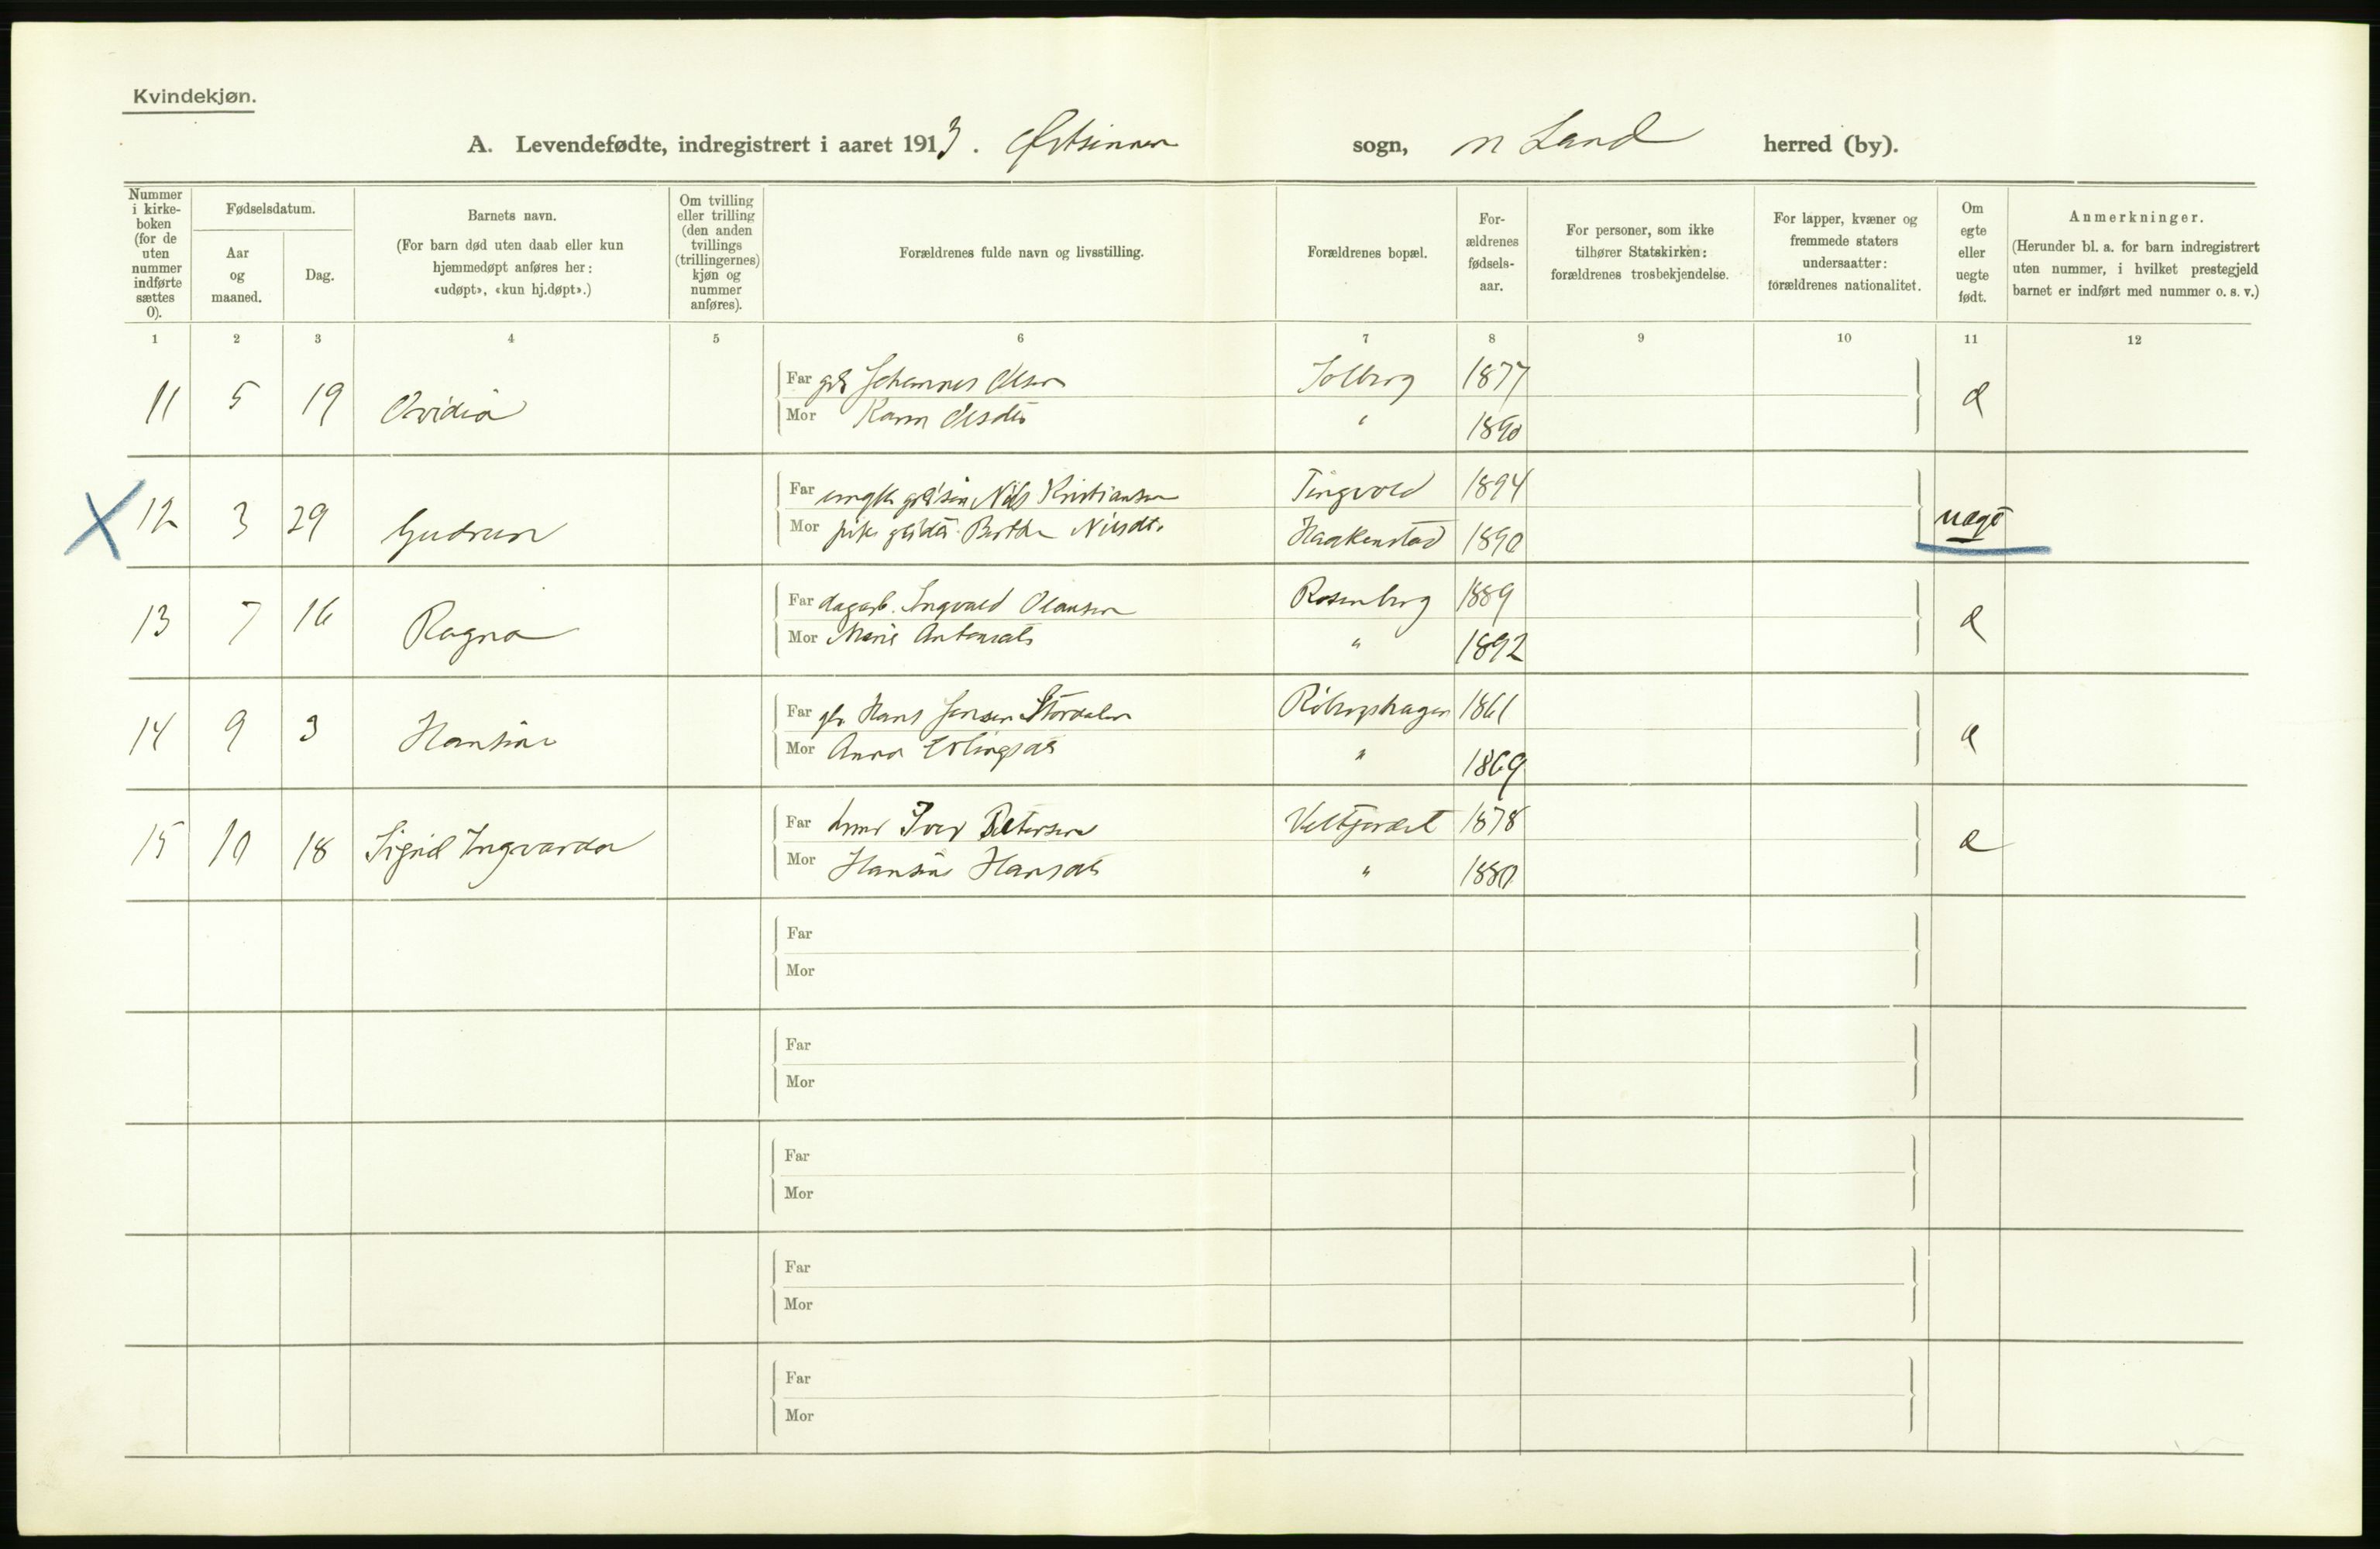 Kvindekjøn.
A. Levendefødte, indregistrert i aaret 1913. Østsinnen sogn, N Land herred (by).
Nummer i kirke-boken (for de uten nummer indførte sættes 0).
Fødselsdatum.
Aar og maaned.
Dag.
Barnets navn.
(For barn død uten daab eller kun hjemmedøpt anføres her: «udøpt», «kun hj.døpt».)
Om tvilling eller trilling (den anden tvillings (trillingernes) kjøn og nummer anføres).
Forældrenes fulde navn og livsstilling.
Forældrenes bopæl.
For-ældrenes fødsels-aar.
For personer, som ikke tilhører Statskirken: forældrenes trosbekjendelse.
For lapper, kvæner og fremmede staters undersaatter: forældrenes nationalitet.
Om egte eller uegte født.
Anmerkninger.
(Herunder bl. a. for barn indregistrert uten nummer, i hvilket prestegjeld barnet er indført med nummer o. s. v.)
1 2 3 4 5 6 7 8 9 10 11 12
11 5 19 Ovidia
Far Johannes Olsen Solberg 1877
Mor Karen Olsdtr " 1890
X 12 3 29 Gudrun uegte
Far ungk Nils Kristiansen Tingvold 1894
Mor pike Berthe Nilsdtr Haakenstad 1890
13 7 16 Ragna
Far dagarb. Ingvald Olausen Rosenberg 1889
Mor Marie Antonsdtr " 1892
14 9 3 Hansine
Far Hans Jensen Stordalen 1861
Mor Anna Erlingsdtr " 1869
15 10 18 Sigrid Ingvarda
Far Iver Petersen 1878
Mor Hansine Hansdtr " 1880
Far
Mor
Far
Mor
Far
Mor
Far
Mor
Far
Mor